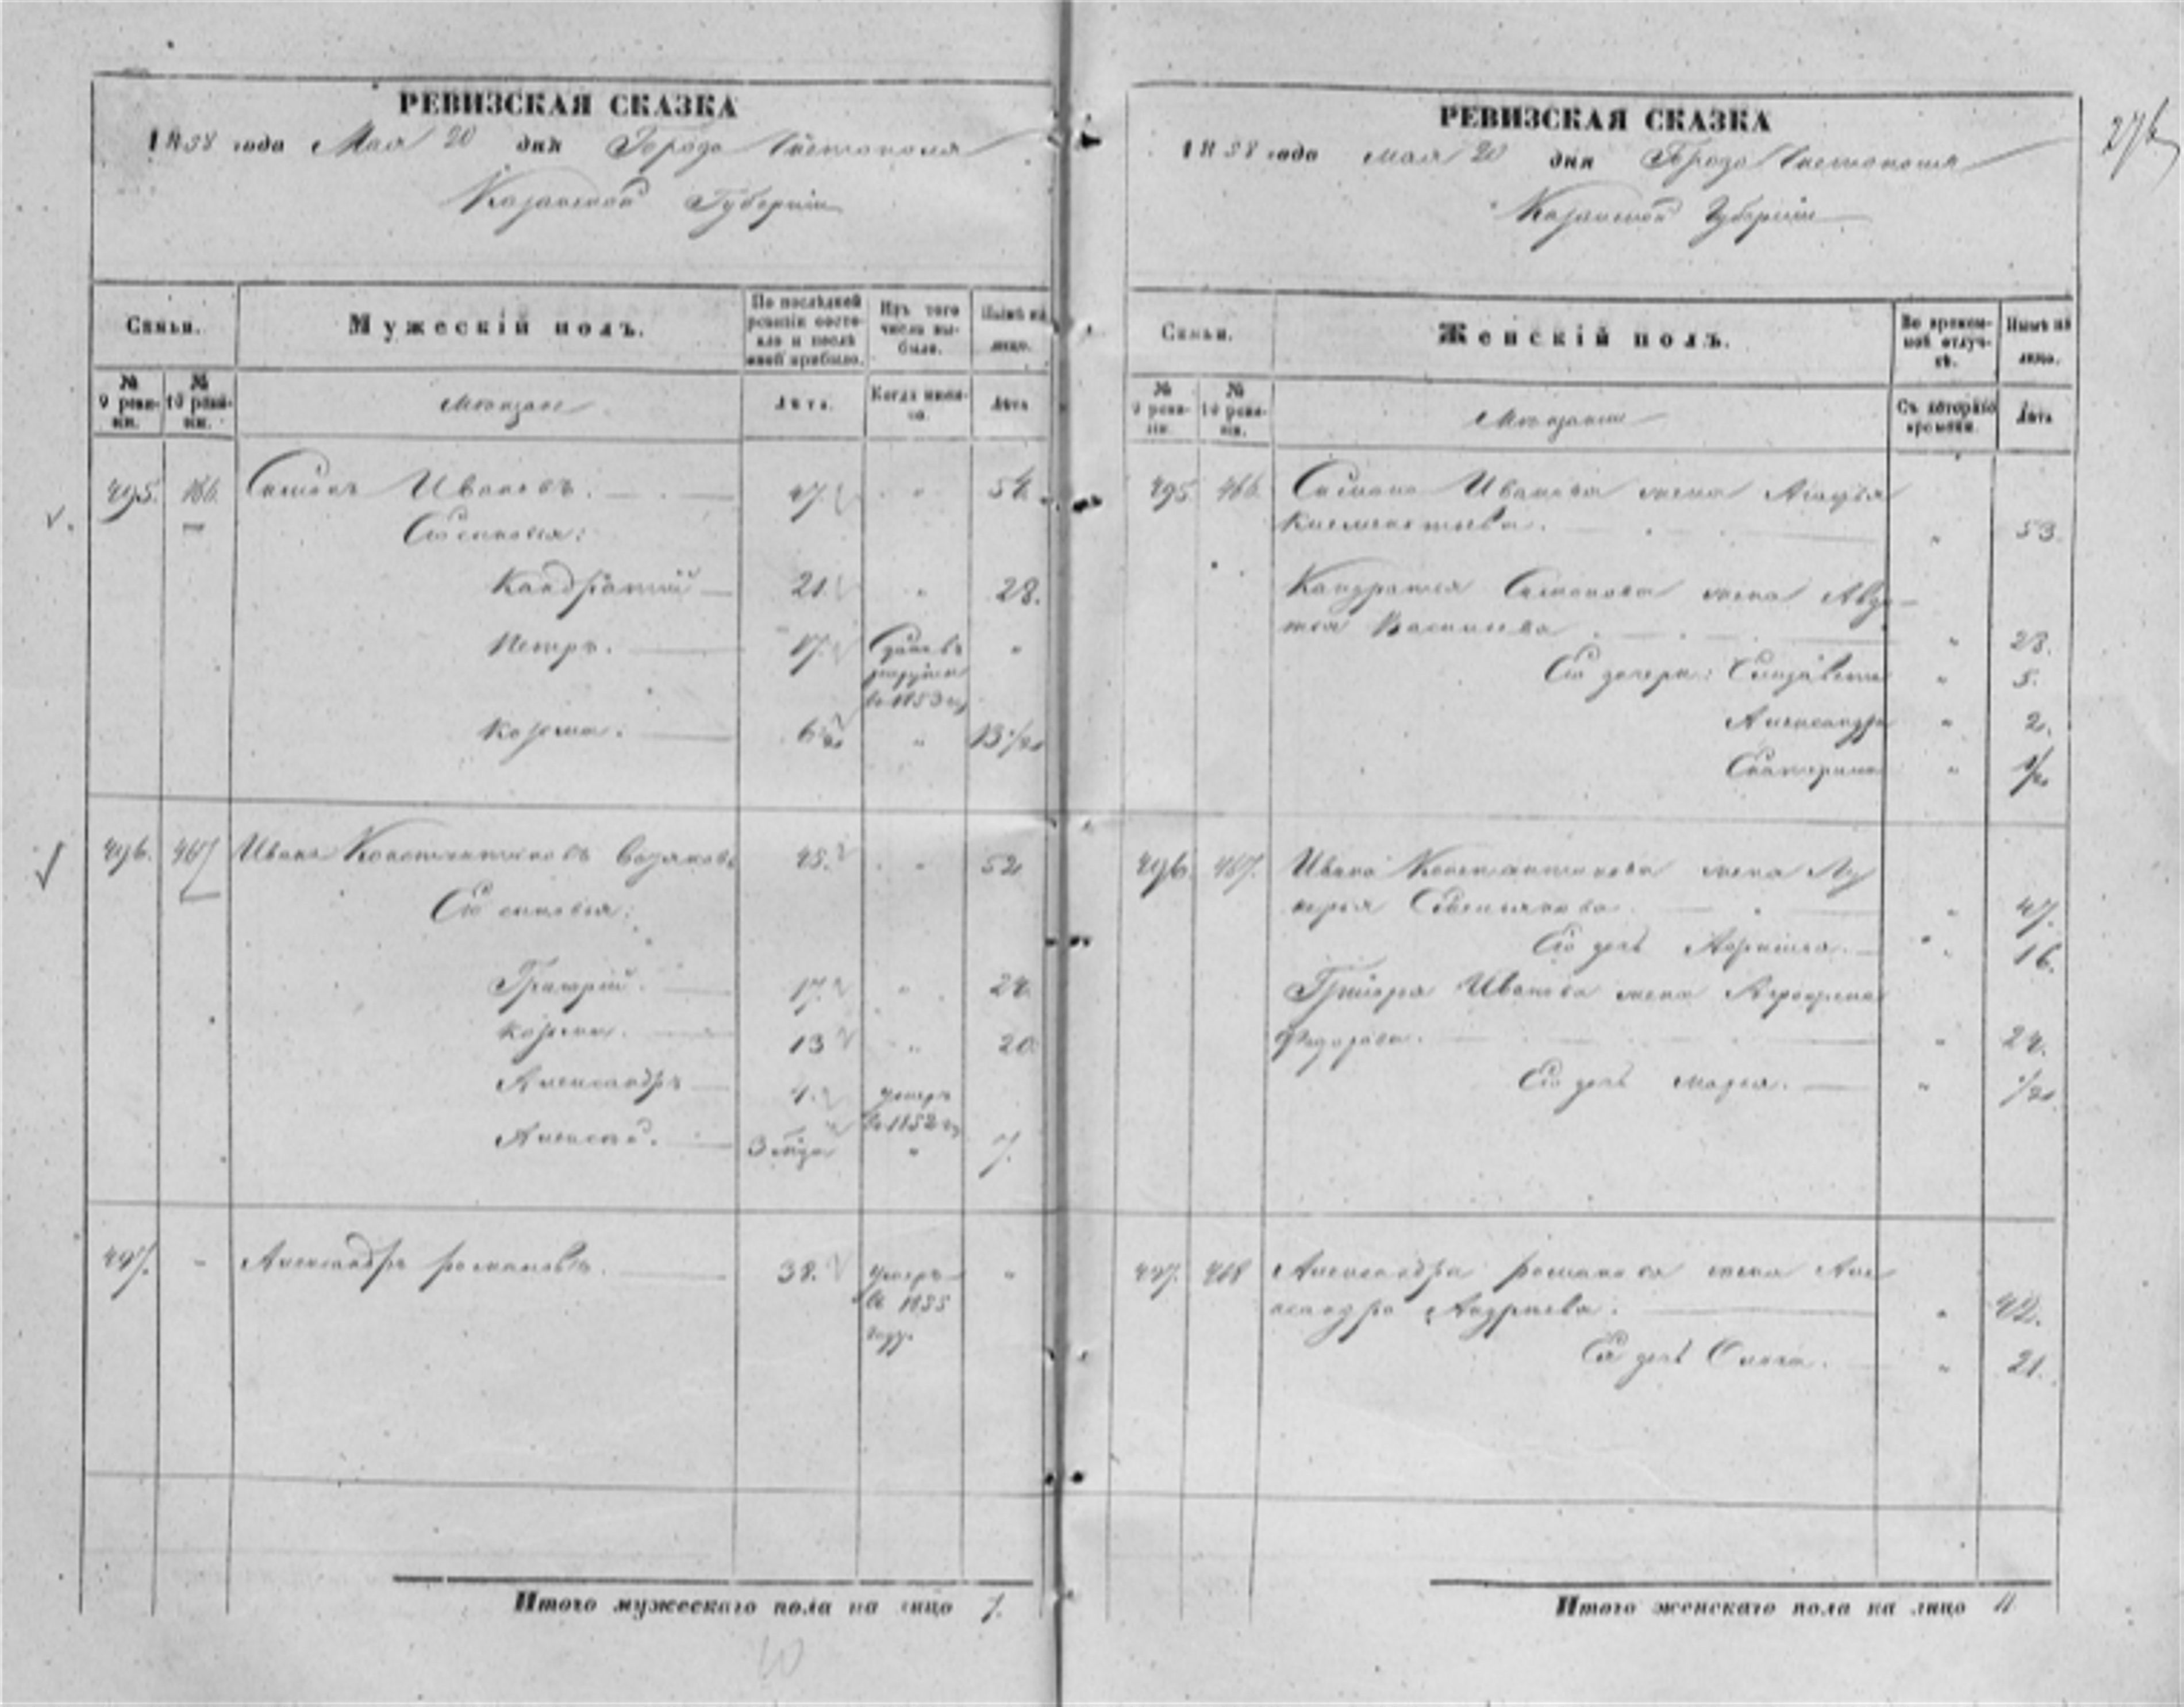 РЕВИЗСКАЯ СКАЗКА
1858 года Мая 20 дня Города Чистополя
Казанской Губерніи
Семьи.
Мужескій полъ.
По послѣдней ревизіи состояло и послѣ оной прибыло.
Изъ того числа выбыло.
Нынѣ на лицо.
№ 9 ревизіи.
№ 10 ревизіи.
Мѣщане
Лѣта.
Когда именно.
Лѣта
495. 466. Симонъ Ивановъ. 47. " 54.
Его сыновья:
Кандратій 21. " 28.
Петръ. 17. Сданъ въ рекруты въ 1853 г. "
Козьма. 6 " 13
496. 467 Иванъ Константиновъ 45. " 52
Его сыновья:
Григорій. 17. " 24.
Козьма. 13 " 20.
Александръ 4. умеръ въ 1852 г.
Алексѣй. 3 " 7.
497. - Александръ Романовъ. 38. умеръ въ 1855 году. "
Итого мужескаго пола на лицо 7.
10
РЕВИЗСКАЯ СКАЗКА
1858 года мая 20 дня Города Чистополя
Казанской Губерніи
Семьи.
Женскій полъ.
Во временной отлучкѣ.
Нынѣ на лицо.
№ 9 ревизіи.
№ 10 ревизіи.
Мѣщане
Съ котораго времени.
Лѣта
495. 466. Симона Иванова жена Агафья
" 53.
Кандратья Симонова жена Авдо-
тья Васильева " 28.
Его дочери: Елизавета " 5.
Александра " 2.
Екатерина "
496. 467. Ивана Константинова жена Лу
керья " 47.
Его дочь " 16.
Григорья Иванова жена Аграфена
Федорова. " 24.
Его дочь Марья. "
497. 468 Александра Романова жена Але
ксандра Андреева. " 42.
Ея дочь Ольга. " 21.
Итого женскаго пола на лицо 11